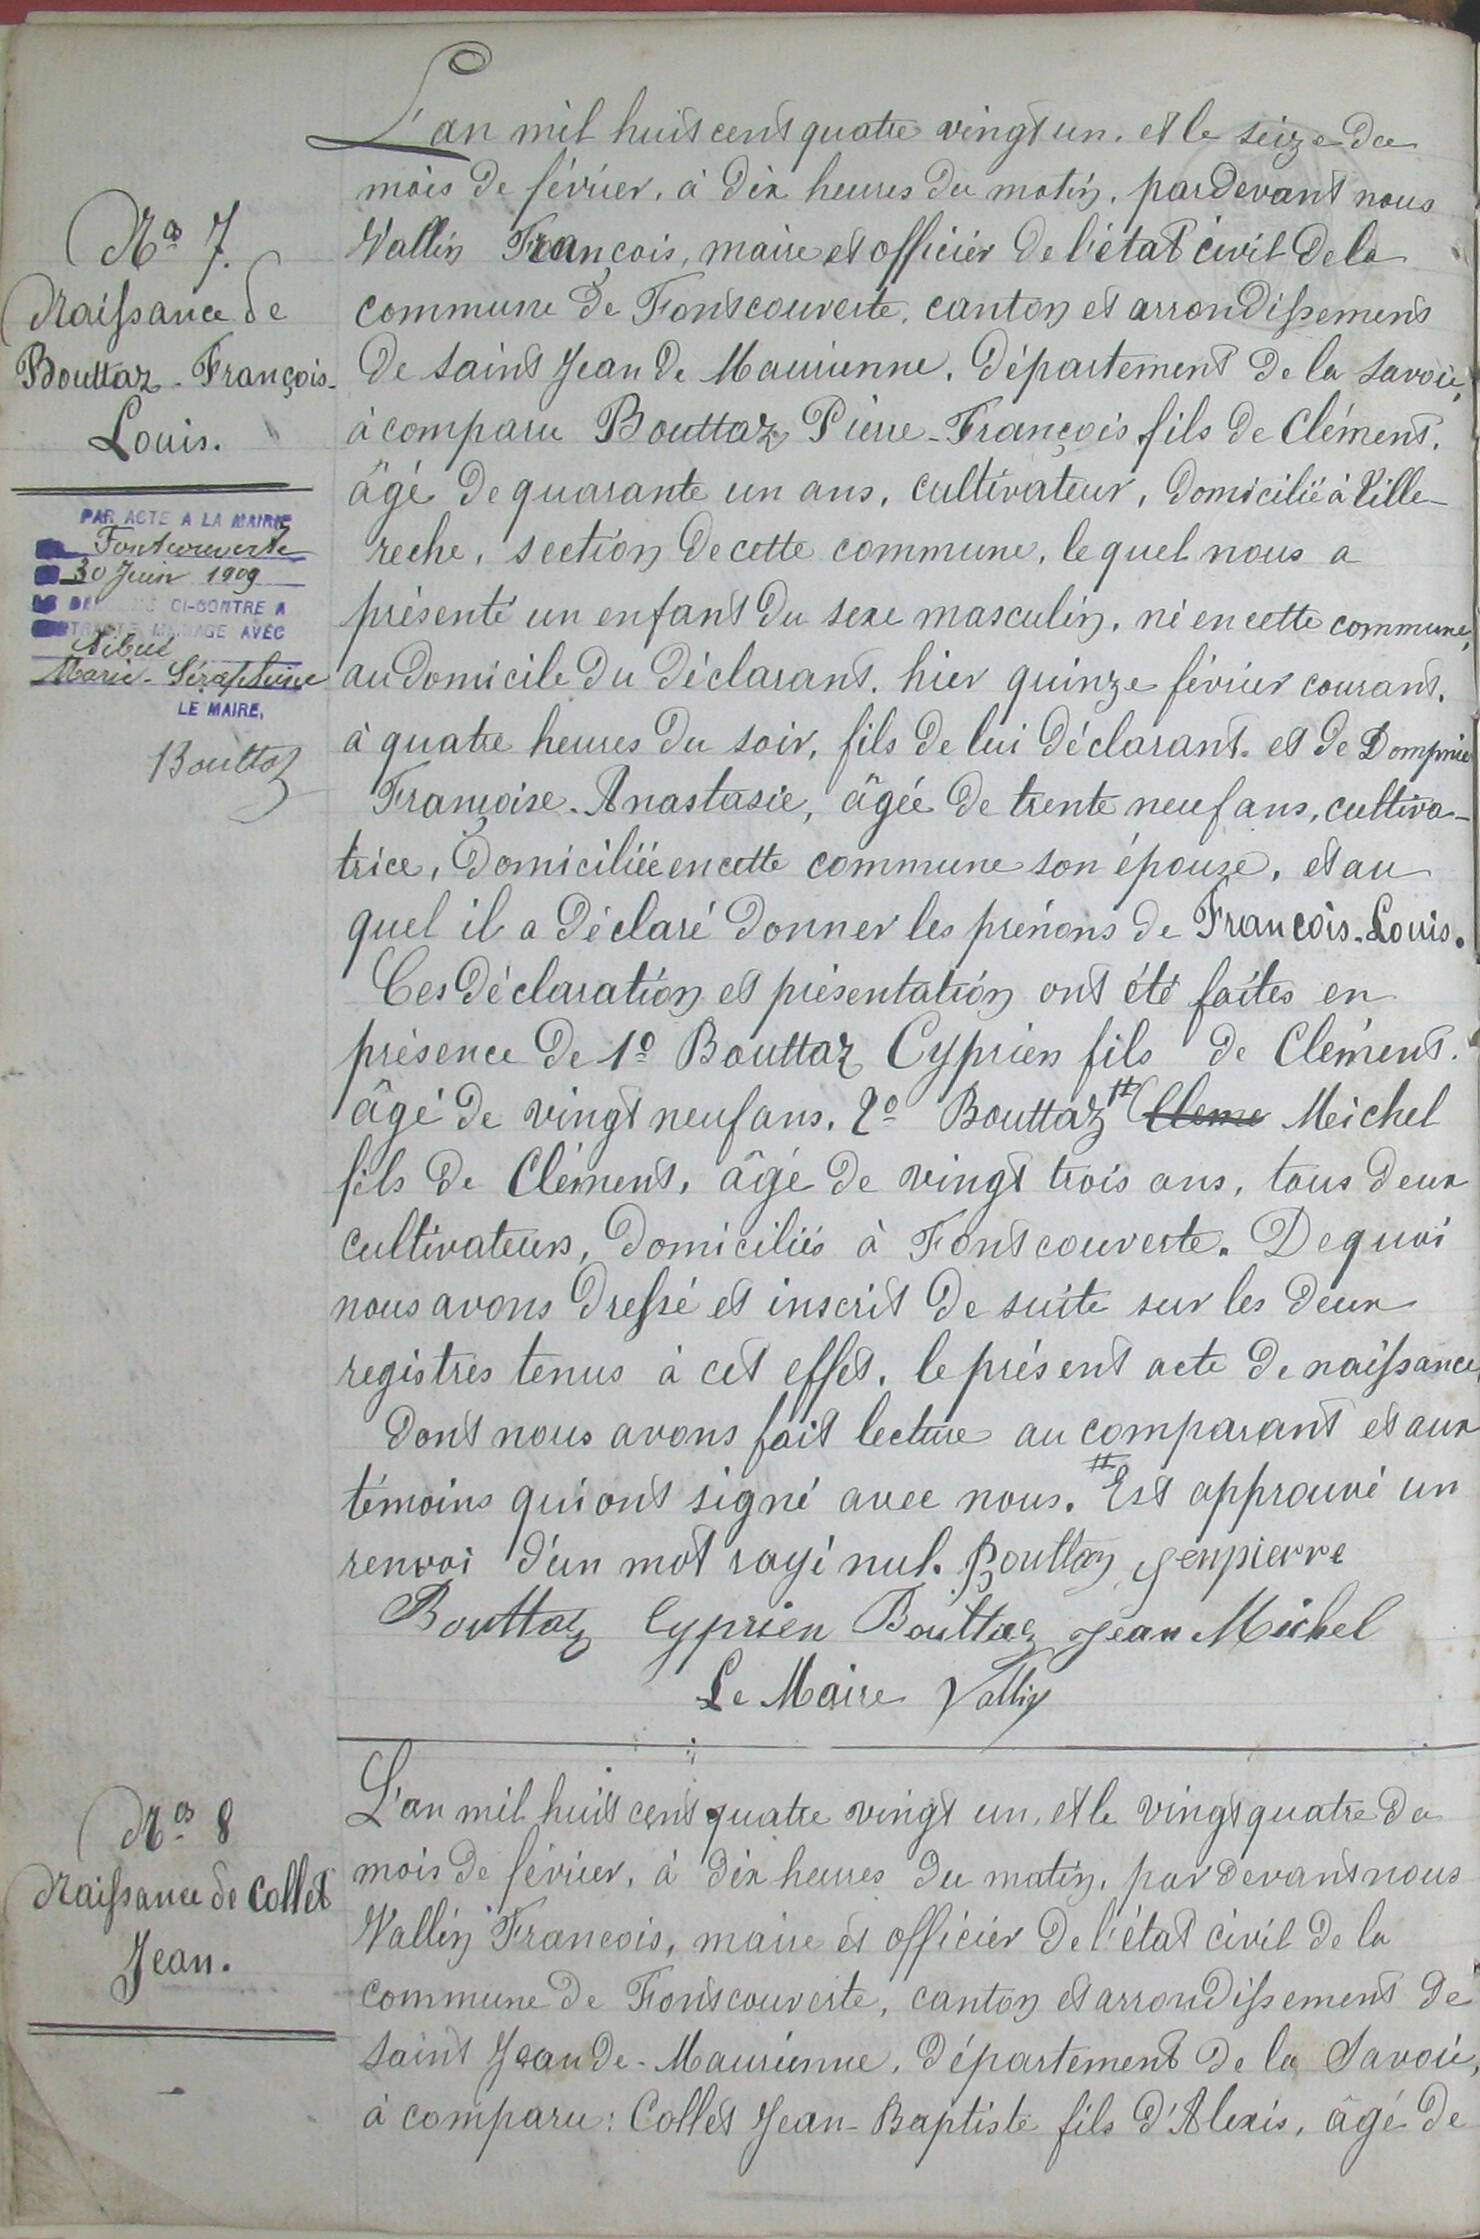 Nº 7.
Naissance de
Bouttaz - François-
Louis.
PAR ACTE A LA MAIRIE
Fontcouverte
30 Juin 1909
CI-CONTRE A
MARIAGE AVEC
Marie-Séraphine
LE MAIRE,
Bouttaz
L'an mil huit cent quatre vingt un. et le seize du
mois de février, à dix heures du matin, pardevant nous
Vallin François, maire et officier de l'état civil de la
commune de Fontcouverte, canton et arrondissement
de saint Jean de Maurienne, département de la Savoie,
à comparu Bouttaz Pierre-François fils de Clément,
âgé de quarante un ans, cultivateur, domicilié à Ville-
reche, section de cette commune, lequel nous a
présenté un enfant du sexe masculin, né en cette commune,
au domicile du déclarant, hier quinze février courant,
à quatre heures du soir, fils de lui déclarant et de Dompnier
Françoise-Anastasie, âgée de trente neuf ans, cultiva-
trice, domiciliée en cette commune son épouse, et au
quel il a déclaré donner les prénons de François-Louis.
Ces déclaration et présentation ont été faites en
présence de 1º Bouttaz Cyprien fils de Clément.
âgé de vingt neuf ans, 2º Bouttaz # Cleme Meichel
fils de Clément, âgé de vingt trois ans, tous deux
cultivateurs, domiciliés à Fontcouverte. De quoi
nous avons dressé et inscrit de suite sur les deux
registres tenus à cet effet, le présent acte de naissance,
dont nous avons fait lecture au comparant et aux
témoins qui ont signé avec nous. # Est approuvé un
renvoi d'un mot rayé nul. Bouttaz jenpierre
Bouttaz Cyprien Bouttaz Jean Michel
Le Maire Vallin
Nº 8
Naissance de Collet
Jean.
L'an mil huit cent quatre vingt un, et le vingt quatre du
mois de février, à dix heures du matin, par devant nous
Vallin François, maire et officier de l'état civil de la
commune de Fontcouverte, canton et arrondissement de
saint Jean de-Maurienne, département de la Savoie,
à comparu: Collet Jean-Baptiste fils d'Alexis, âgé de